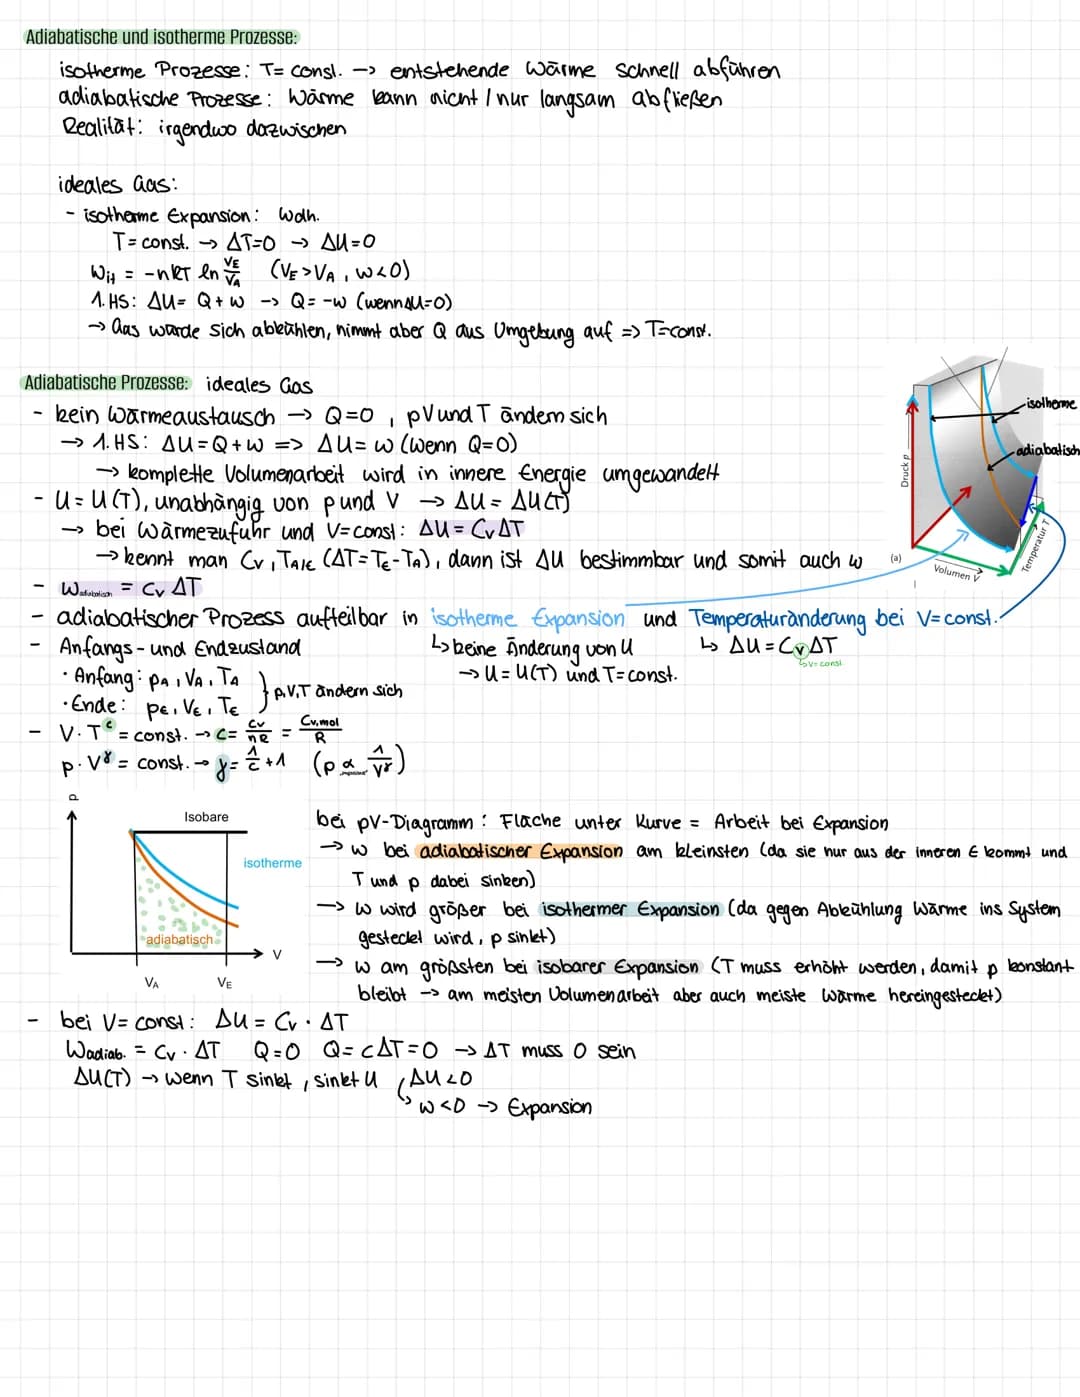 Adiabatische und isotherme Prozesse:
isotherme Prozesse: T= const. → entstehende Wärme schnell abführen
adiabatische Prozesse: Wärme kann nicht / nur langsam abfließen
Realität: irgendwo dazwischen
ideales Gas:
- isotherme Expansion: Wdh.
T= const. → ΔT=0 → ΔU=0
Wit = -nRT ln VE/VA (VE>VA, W<0)
1.HS: ΔU= Q+W → Q= -W (wenn ΔU=0)
→ Gas würde sich abkühlen, nimmt aber Q aus Umgebung auf => T=const.
Adiabatische Prozesse: ideales Gas
- kein Wärmeaustausch → Q=0, pV und T ändern sich
→ 1.HS: ΔU=Q+W => ΔU=W (wenn Q=0)
→ komplette Volumenarbeit wird in innere Energie umgewandelt
- U=U(T), unabhängig von p und V → ΔU= ΔU(T)
→ bei Wärmezufuhr und V=const: ΔU= CvΔT
→ kennt man Cv, TA/E (ΔT=TE-TA), dann ist ΔU bestimmbar und somit auch W
isotherme
adiabatisch
Druck p
Volumen V
Temperatur T
(a)
- Wadiabatisch = Cv ΔT
- adiabatischer Prozess aufteilbar in isotherme Expansion und Temperaturänderung bei V=const.
- Anfangs- und Endzustand
↳ keine Änderung von U
↳ ΔU=CvΔT
↳V=const
→ U=U(T) und T=const.
· Anfang: pA, VA, TA
· Ende: pE, VE, TE
} p,V,T ändern sich
- V·T^c = const. → c= Cv/nR = Cv,mol/R
p·V^γ = const. → γ= 1/c +1 (p ∝ 1/V^γ)
p
Isobare
isotherme
adiabatisch
V
VA
VE
bei pV-Diagramm: Fläche unter Kurve = Arbeit bei Expansion
→ W bei adiabatischer Expansion am kleinsten (da sie nur aus der inneren E kommt und
T und p dabei sinken)
→ W wird größer bei isothermer Expansion (da gegen Abkühlung Wärme ins System
gesteckt wird, p sinkt)
→ W am größten bei isobarer Expansion (T muss erhöht werden, damit p konstant
bleibt → am meisten Volumenarbeit aber auch meiste Wärme hereingesteckt)
- bei V= const: ΔU= Cv · ΔT
Wadiab. = Cv · ΔT Q=0 Q= cΔT=0 → ΔT muss 0 sein
ΔU(T) → wenn T sinkt, sinkt U, ΔU<0
↳ W<0 → Expansion